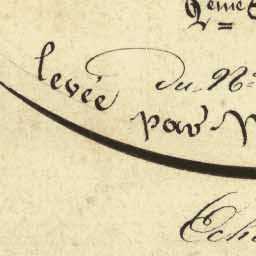 2ème
levée
du N°
par
Ech